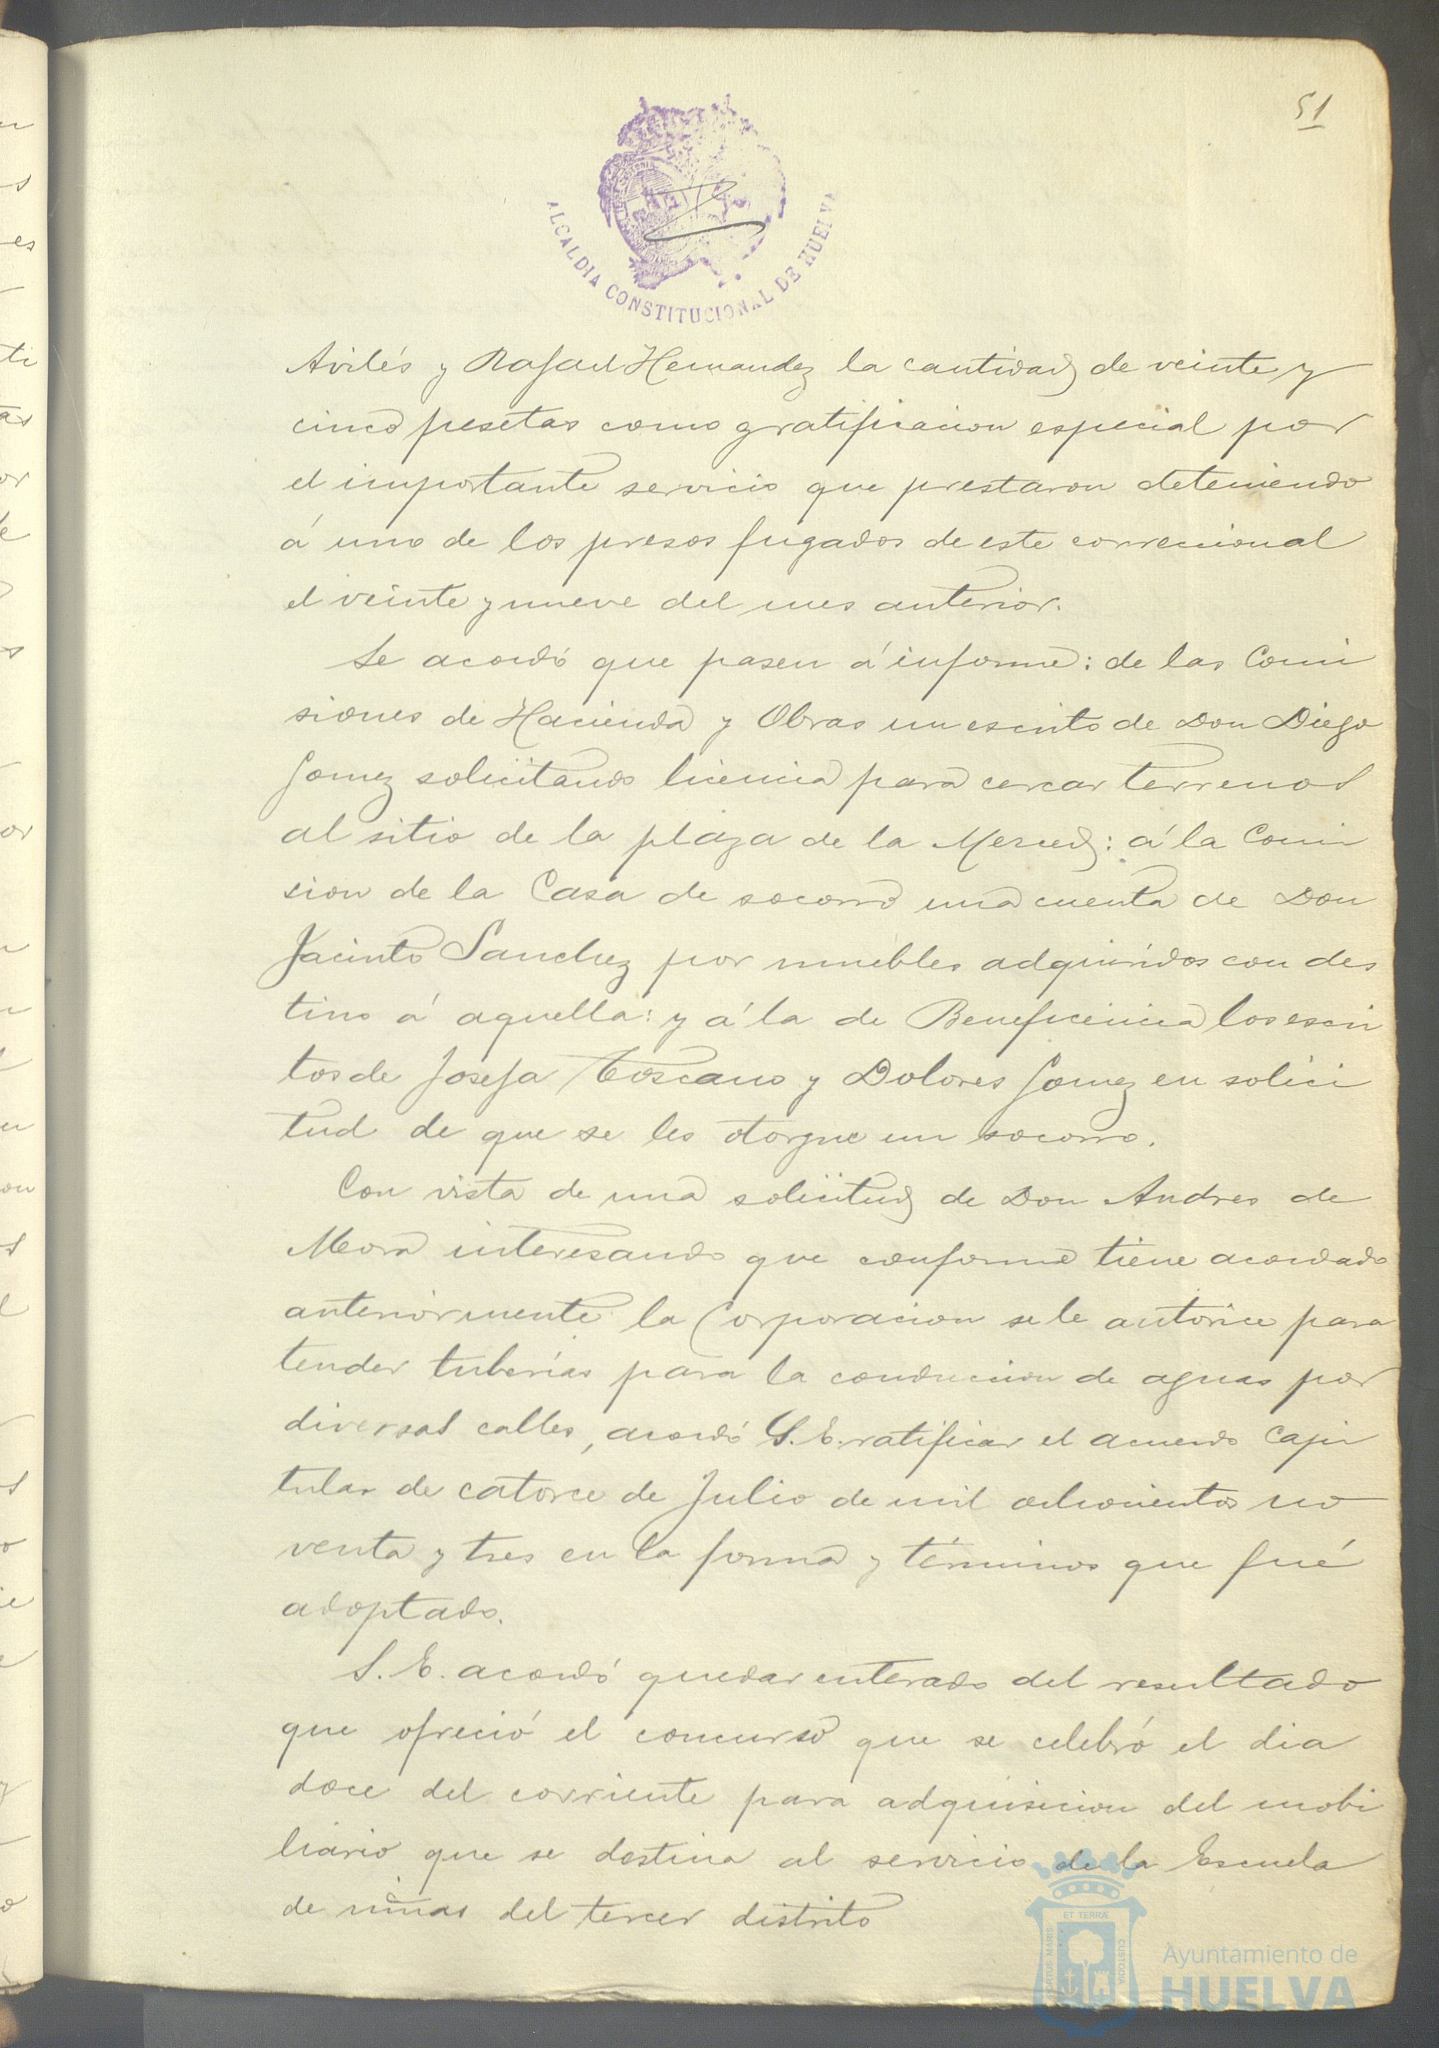 51
ALCALDIA CONSTITUCIONAL DE HUELVA
Avilés y Rafael Hernandez la cantidad de veinte y
cinco pesetas como gratificacion especial por
el importante servicio que prestaron deteniendo
á uno de los presos fugados de este correccional
el veinte y nueve del mes anterior.
Se acordó que pasen á informe: de las Comi
siones de Hacienda y Obras un escrito de Don Diego
Gomez solicitando licencia para cercar terrenos
al sitio de la plaza de la Merced: á la Comi
sion de la Casa de socorro una cuenta de Don
Jacinto Sanchez por muebles adquiridos con des
tino á aquella: y á la de Beneficencia los escri
tos de Josefa Toscano y Dolores Gomez en solici
tud de que se les otorgue un socorro.
Con vista de una solicitud de Don Andres de
Mora interesando que conforme tiene acordado
anteriormente la Corporacion se le autorice para
tender tuberías para la conduccion de aguas por
diversas calles, acordó S. E. ratificar el acuerdo Capi
tular de catorce de Julio de mil ochocientos no
venta y tres en la forma y términos que fué
adoptado.
S. E. acordó quedar enterado del resultado
que ofreció el concurso que se celebró el dia
doce del corriente para adquisicion del mobi
liario que se destina al servicio de la Escuela
de niñas del tercer distrito
ET TERRÆ
PORTUS MARIS
CUSTODIA
Ayuntamiento de
HUELVA